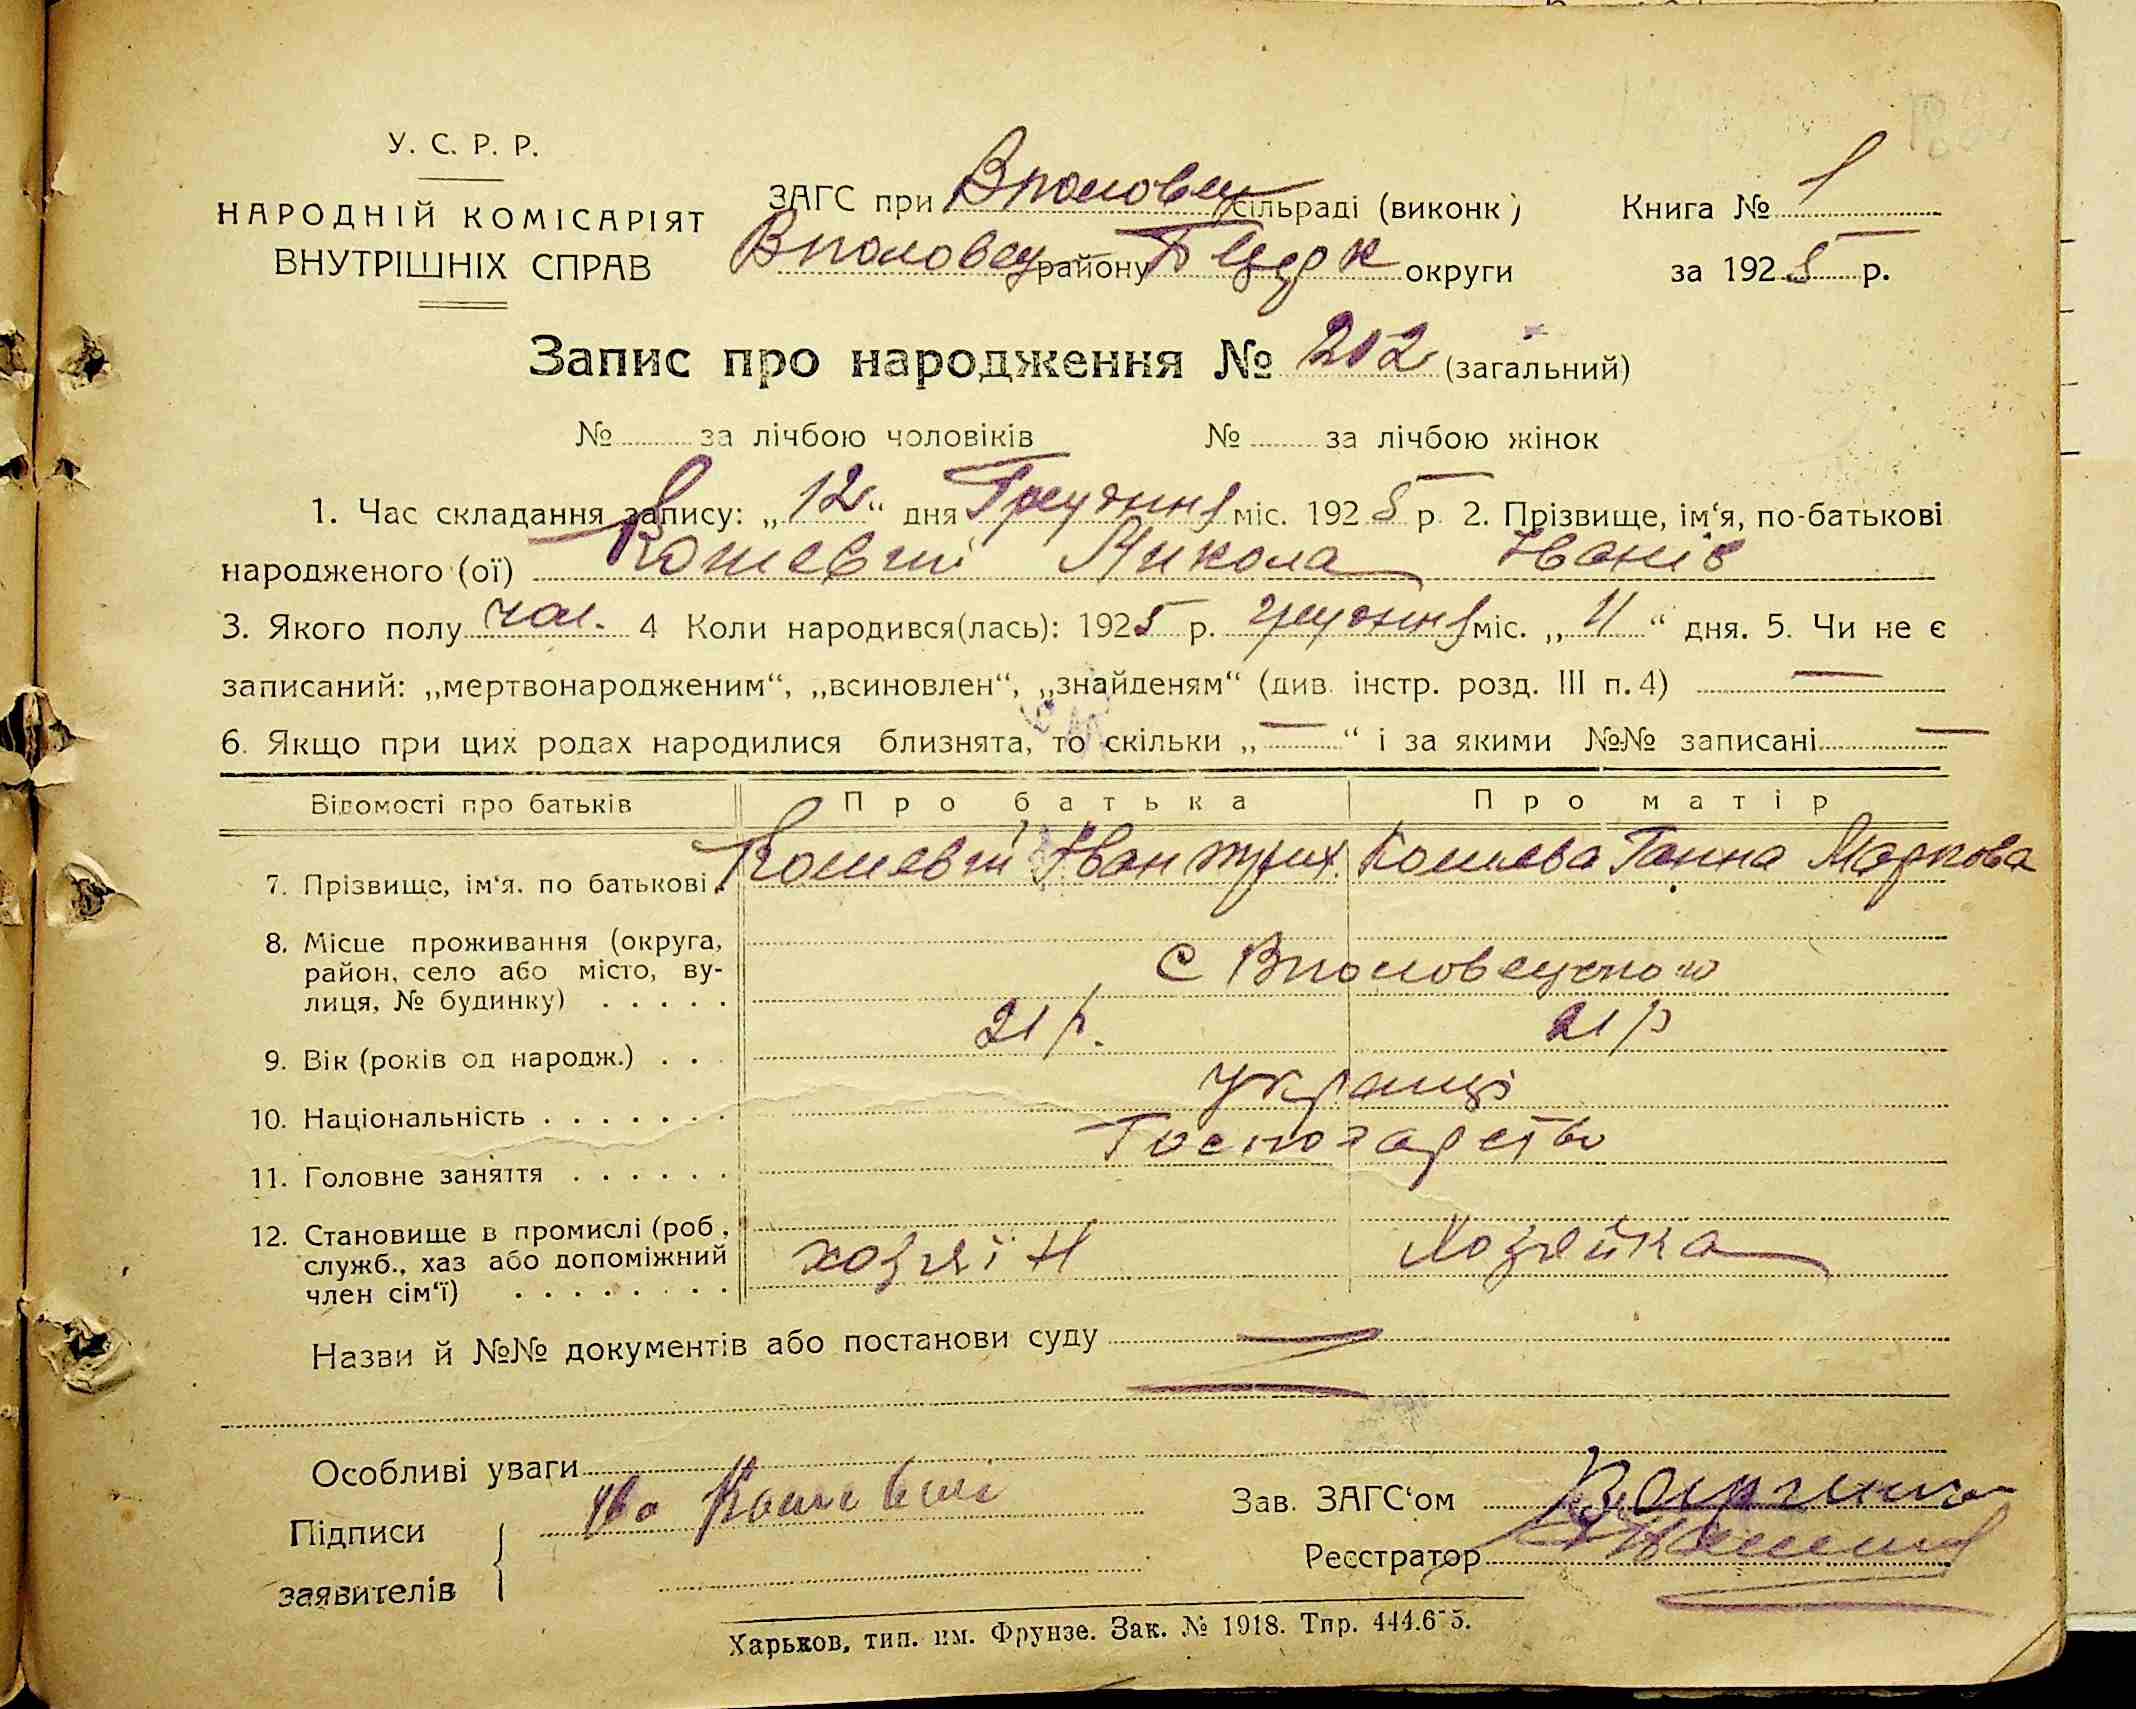 У. С. Р. Р.
НАРОДНІЙ КОМІСАРІЯТ
ВНУТРІШНІХ СПРАВ
ЗАГС при Вполовец сільраді (виконк)
Вполовец району Б Церк округи
Книга № 1
за 1925 р.
Запис про народження № 202 (загальний)
№ за лічбою чоловіків № за лічбою жінок
1. Час складання запису: „12“ дня Грудня міс. 1925 р. 2. Прізвище, ім‘я, по-батькові
народженого (ої) Кошевий Микола Іванів
3. Якого полу чол. 4 Коли народився(лась): 1925 р. грудня міс. „11“ дня. 5. Чи не є
записаний: „мертвонародженим“, „всиновлен“, „знайденям“ (див. інстр. розд. III п. 4) —
6. Якщо при цих родах народилися близнята, то скільки „—“ і за якими №№ записані —
Відомості про батьків Про батька Про матір
7. Прізвище, ім‘я. по батькові Кошевий Іван Кошева Ганна Маркова
8. Місце проживання (округа,
район, село або місто, ву-
лиця, № будинку) . . . . . с Вполовецького
9. Вік (років од народж.) . . . 21 р. 21 р
10. Національність . . . . . . . українці
11. Головне заняття . . . . . . Господарство
12. Становище в промислі (роб.,
служб., хаз або допоміжний
член сім‘ї) . . . . . . . . хозяїн Хозяйка
Назви й №№ документів або постанови суду —
Особливі уваги
Підписи
заявителів
Ів Кошевий
Зав. ЗАГС‘ом
Реєстратор
Харьков, тип. им. Фрунзе. Зак. № 1918. Тпр. 444.675.